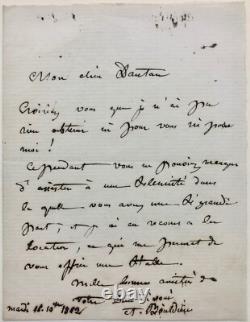 Mon cher Dantan
Croiriez vous que je n'ai pu
rien obtenir ni pour vous ni pour
moi !
Cependant vous ne pouviez manquer
d'assister à une solennité dans
la quelle vous avez une si grande
part, et j'ai eu recours à la
Location, ce qui me permet de
vous offrir une Stalle.
Mille bonnes amitiés de
votre
mardi 18. 1882